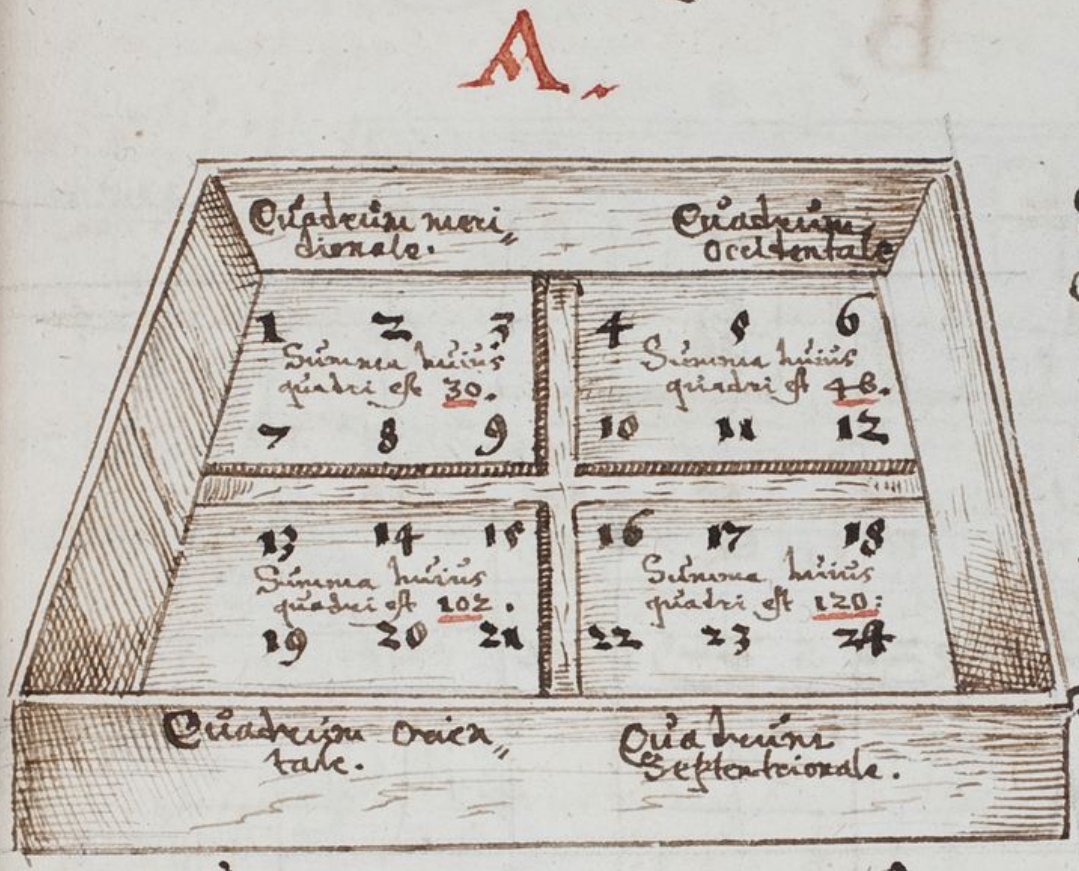 A.
Quadrum meri„
dionale.
Quadrum
occidentale
1 2 3 4 5 6
Summa huius
quadri est 30.
Summa huius
quadri est 48.
7 8 9 10 11 12
13 14 15 16 17 18
Summa huius
quadri est 102.
Summa huius
quadri est 120:
19 20 21 22 23 24
Quadrum orien„
tale.
Quadrum
Septentrionale.